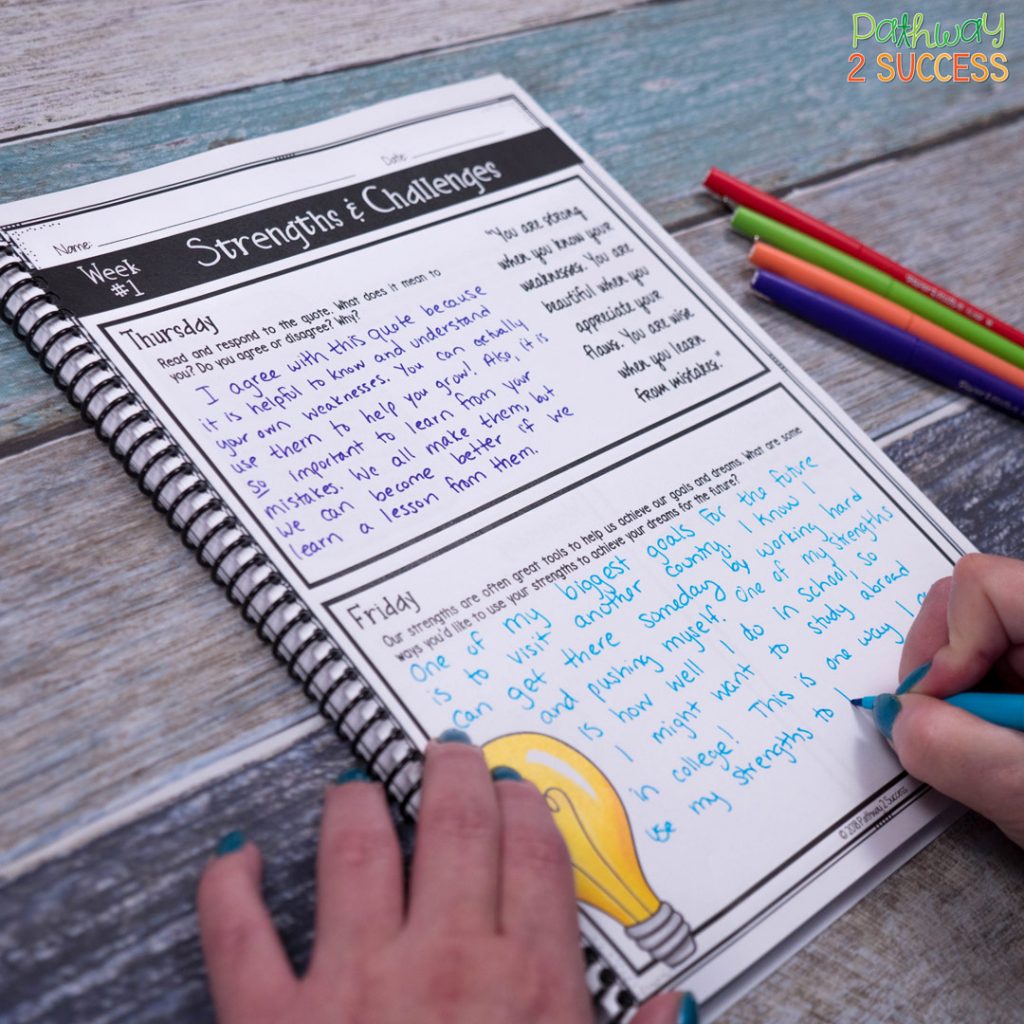 Pathway
2 SUCCESS
Name:
Date:
Week
#1
Strengths & Challenges
Thursday
Read and respond to the quote. What does it mean to
you? Do you agree or disagree? Why?
I agree with this quote because
it is helpful to know and understand
your own weaknesses. You can actually
use them to help you grow! Also, it is
so important to learn from your
mistakes. We all make them, but
we can become better if we
learn a lesson from them.
"You are strong
when you know your
weaknesses. You are
beautiful when you
appreciate your
flaws. You are wise
when you learn
from mistakes."
Friday
Our strengths are often great tools to help us achieve our goals and dreams. What are some
ways you'd like to use your strengths to achieve your dreams for the future?
One of my biggest goals for the future
is to visit another country. I know I
can get there someday by working hard
and pushing myself. One of my strengths
is how well I do in school, so
I might want to study abroad
in college! This is one way I
use my strengths to
© 2018 Pathway 2 Success